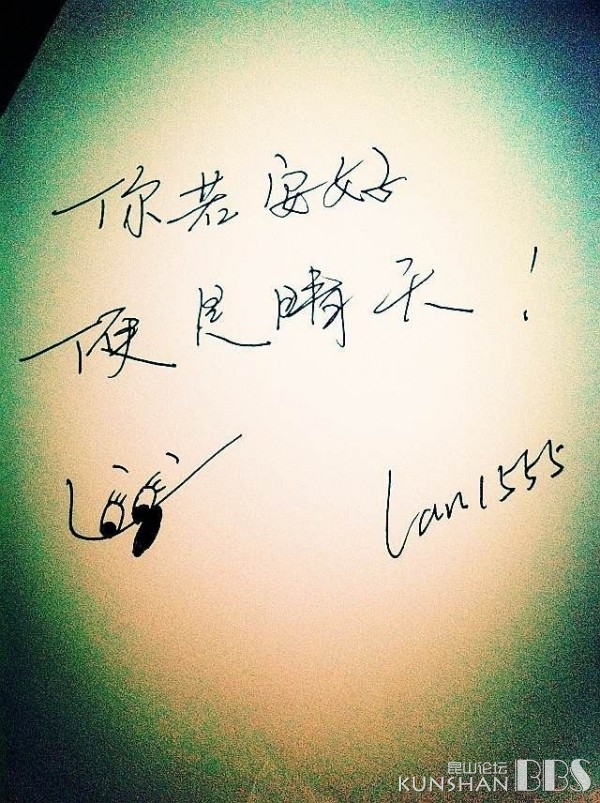 你若安好
便是晴天！
Lan1555
昆山论坛
KUNSHAN BBS